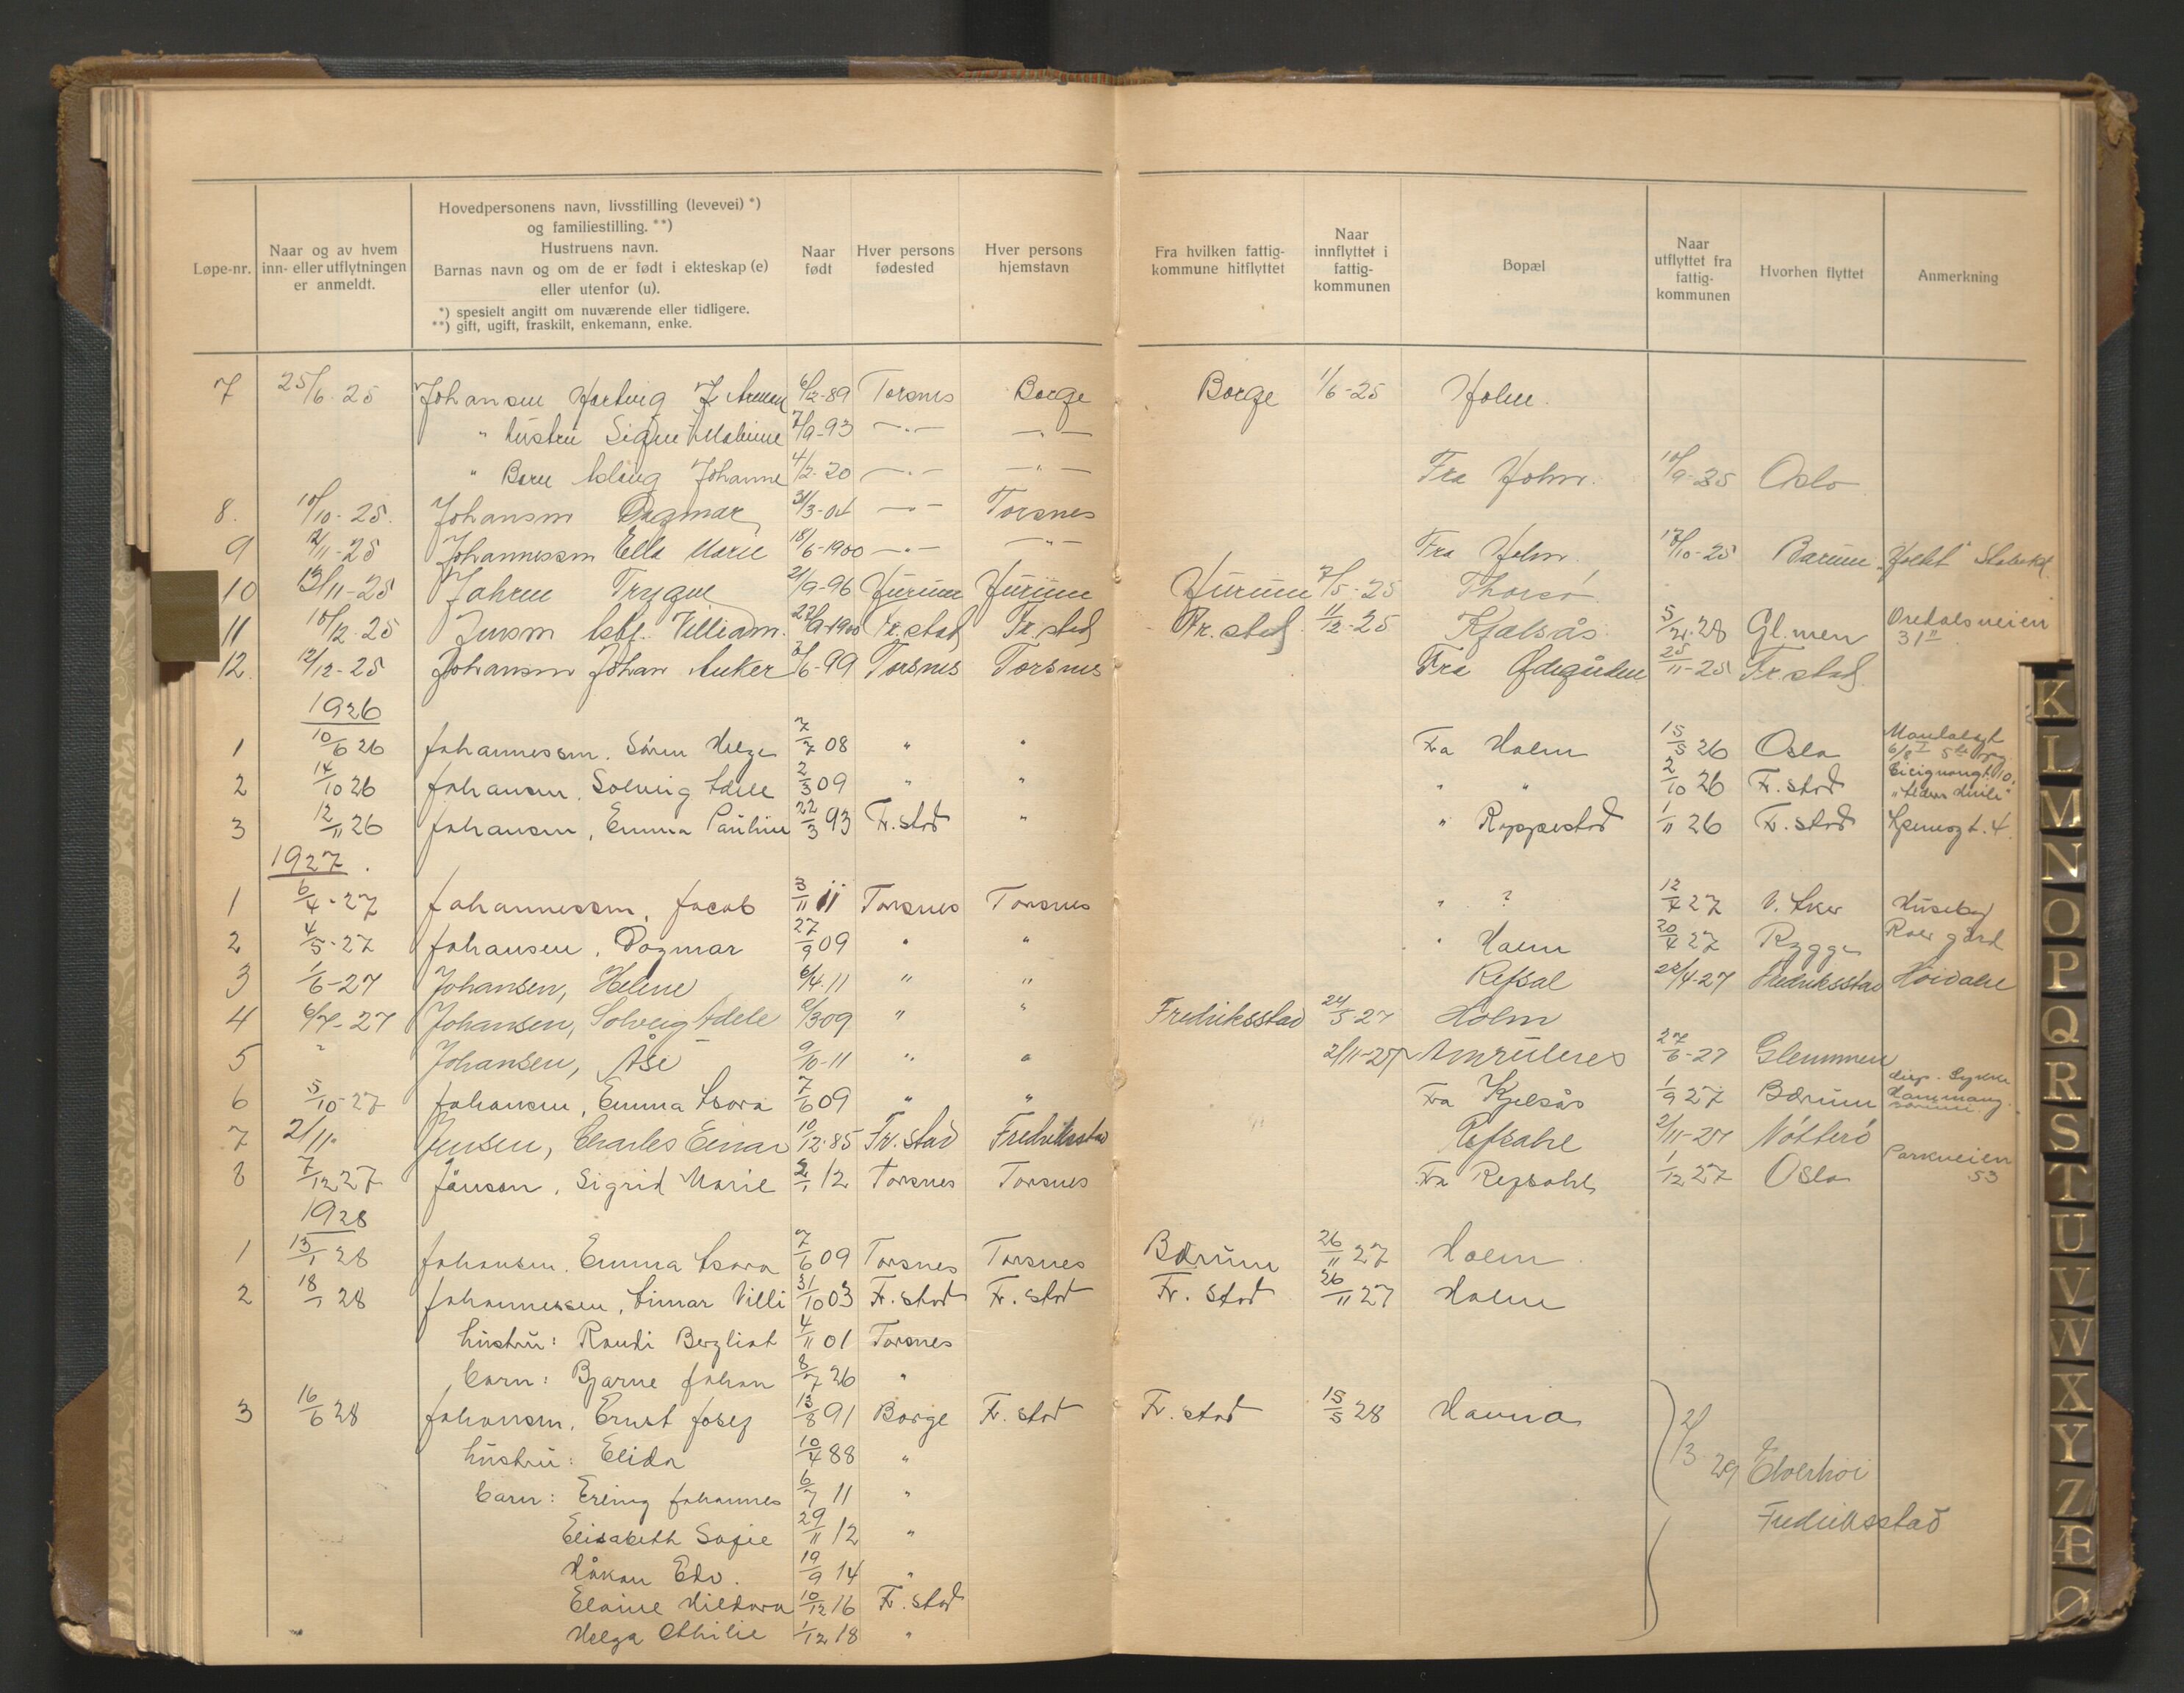 Løpe-nr.
Naar og av hvem inn- eller utflytningen er anmeldt.
Hovedpersonens navn, livsstilling (levevei) *) og familiestilling. **)
Hustruens navn.
Barnas navn og om de er født i ekteskap (e) eller utenfor (u).
*) spesielt angitt om nuværende eller tidligere.
**) gift, ugift, fraskilt, enkemann, enke.
Naar født
Hver persons fødested
Hver persons hjemstavn
Fra hvilken fattig-kommune hitflyttet
Naar innflyttet i fattig-kommunen
Bopæl
Naar utflyttet fra fattig-kommunen
Hvorhen flyttet
Anmerkning
7 25/6. 25 Johansen Hartvig 6/12-89 Torsnes Borge Borge 1/6-25 Holm.
" Hustru Signe 7/9-93 —"— —"—
" Barn Johanne 4/2-20 —"— —"— Fra Holm. Oslo
8. 10/10-25. Johansen Dagmar 31/3-04 —"— Torsnes
9 12/11-25 Johannessen Ella Marie 18/6-1900 —"— —"— Fra Holm. Bærum
10 13/11-25 Jahren Trygve 21/9-96 Hurum Hurum Hurum 7/5-25 Thorsø
11 10/12-25 Jensen William. 22/9-1900 Fr.stad Fr.stad Fr.stad 11/12-25 Kjølsås 28 Gl.men 31 II
12. 12/12-25 Johansen Johan Anker 6-99 Torsnes Torsnes Fra Ødegården 25/11-25 Fr.stad
1926
1 10/6 26 Johannessen. Sören Helge 7/7 08 " " Fra Holm 15/5 26 Oslo
2 14/10 26 Johansen. Solveig Adele 2/3 09 " " " " 2/10 26 F.stad
3 12/11 26 Johansen, Emma Pauline 22/3 93 Fr.stad " " Roppestad 1/11 26 Fr.stad
1927.
1 6/4-27 Johannessen, Jacob 3/11 11 Torsnes Torsnes " ? 12/4 27 V. Aker Huseby
2 4/5-27 Johansen, Dagmar 27/9 09 " " " Holm 20/4 27 Rygge Roer gård
3 1/6-27 Johansen, Helene 6/4.11 " " Refsal 28/4-27 Fredriksstad
4 6/7-27 Johansen, Solveig Adele 2/3 09 " " Fredriksstad 24/5-27 Holm
5 " Johansen, Åse 9/10-11 " " 2/11-27 27/6-27 Glemmen
6 5/10-27 Johansen, Emma Asora 7/6 09 " " Fra Kjølsås 1/9 27 Bærum
7 2/11. Jensen, Charles Einar 10/12.85 Fr.stad Fredriksstad Refsahl 2/11-27 Nötterö
8 7/12 27 Jönson, Sigrid Marie 2/1 12 Torsnes Torsnes Fra Refsahl 1/12 27 Oslo Parkveien 53
1928
1 13/1 28 Johansen. Emma Asora 7/6 09 Torsnes Torsnes Bærum 26/11 27 Holm
2 18/1 28 Johannessen, Einar Villi 31/10 03 Fr. stad Fr. stad Fr. stad 26/11 27 Holm
hustru: Randi Bergliot 4/11 01 Torsnes
barn: Bjarne Johan 8/7 26 "
3 16/6 28 Johansen, Ernst Josef 13/8 91 Borge Fr. stad Fr. stad 15/5 28 Havna
hustru: Elida 10/4 88 "
2/3 29 Elverhøi
barn: Erling Johannes 6/7 11 "
Fredriksstad
Elisabeth Sofie 29/11 12 "
Håkon Edv. 19/9 14 "
Elaine Hildora 10/12 16 Fr. stad
Helga Othilie 1/12 18 "
K
L
M
N
O
P
Q
R
S
T
U
V
W
X
Y
Z
Æ
Ø